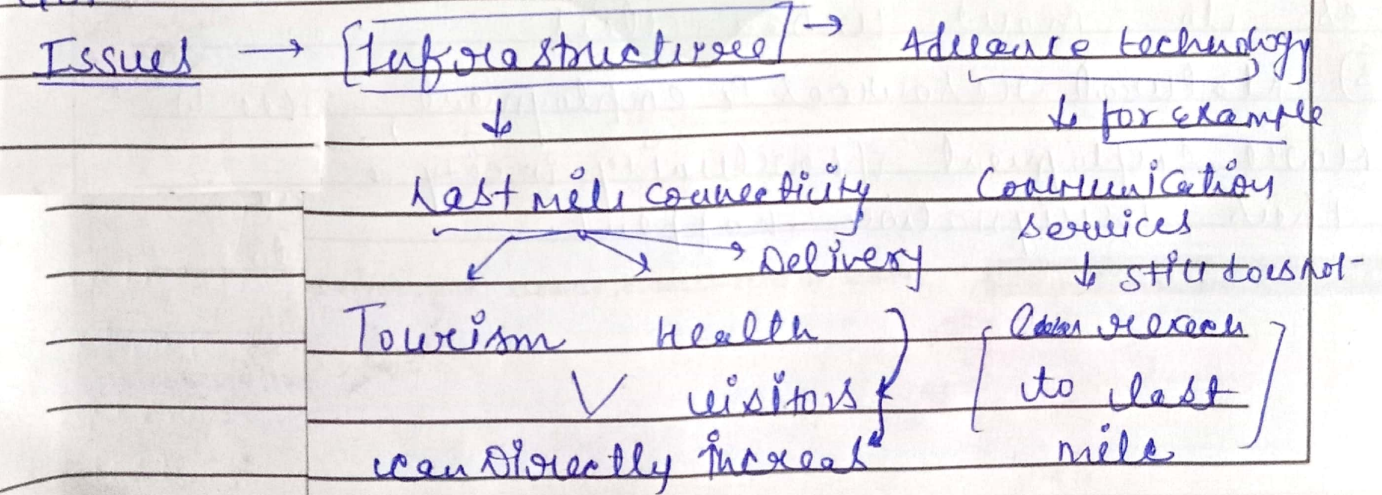 Issues → [Infrastructure] → Advance technology
↓ ↓ for example
Last mile connectivity Communication
services
Delivery ↓ still does not
Tourism Health [ reach
visitors to last
can Directly increas mile ]